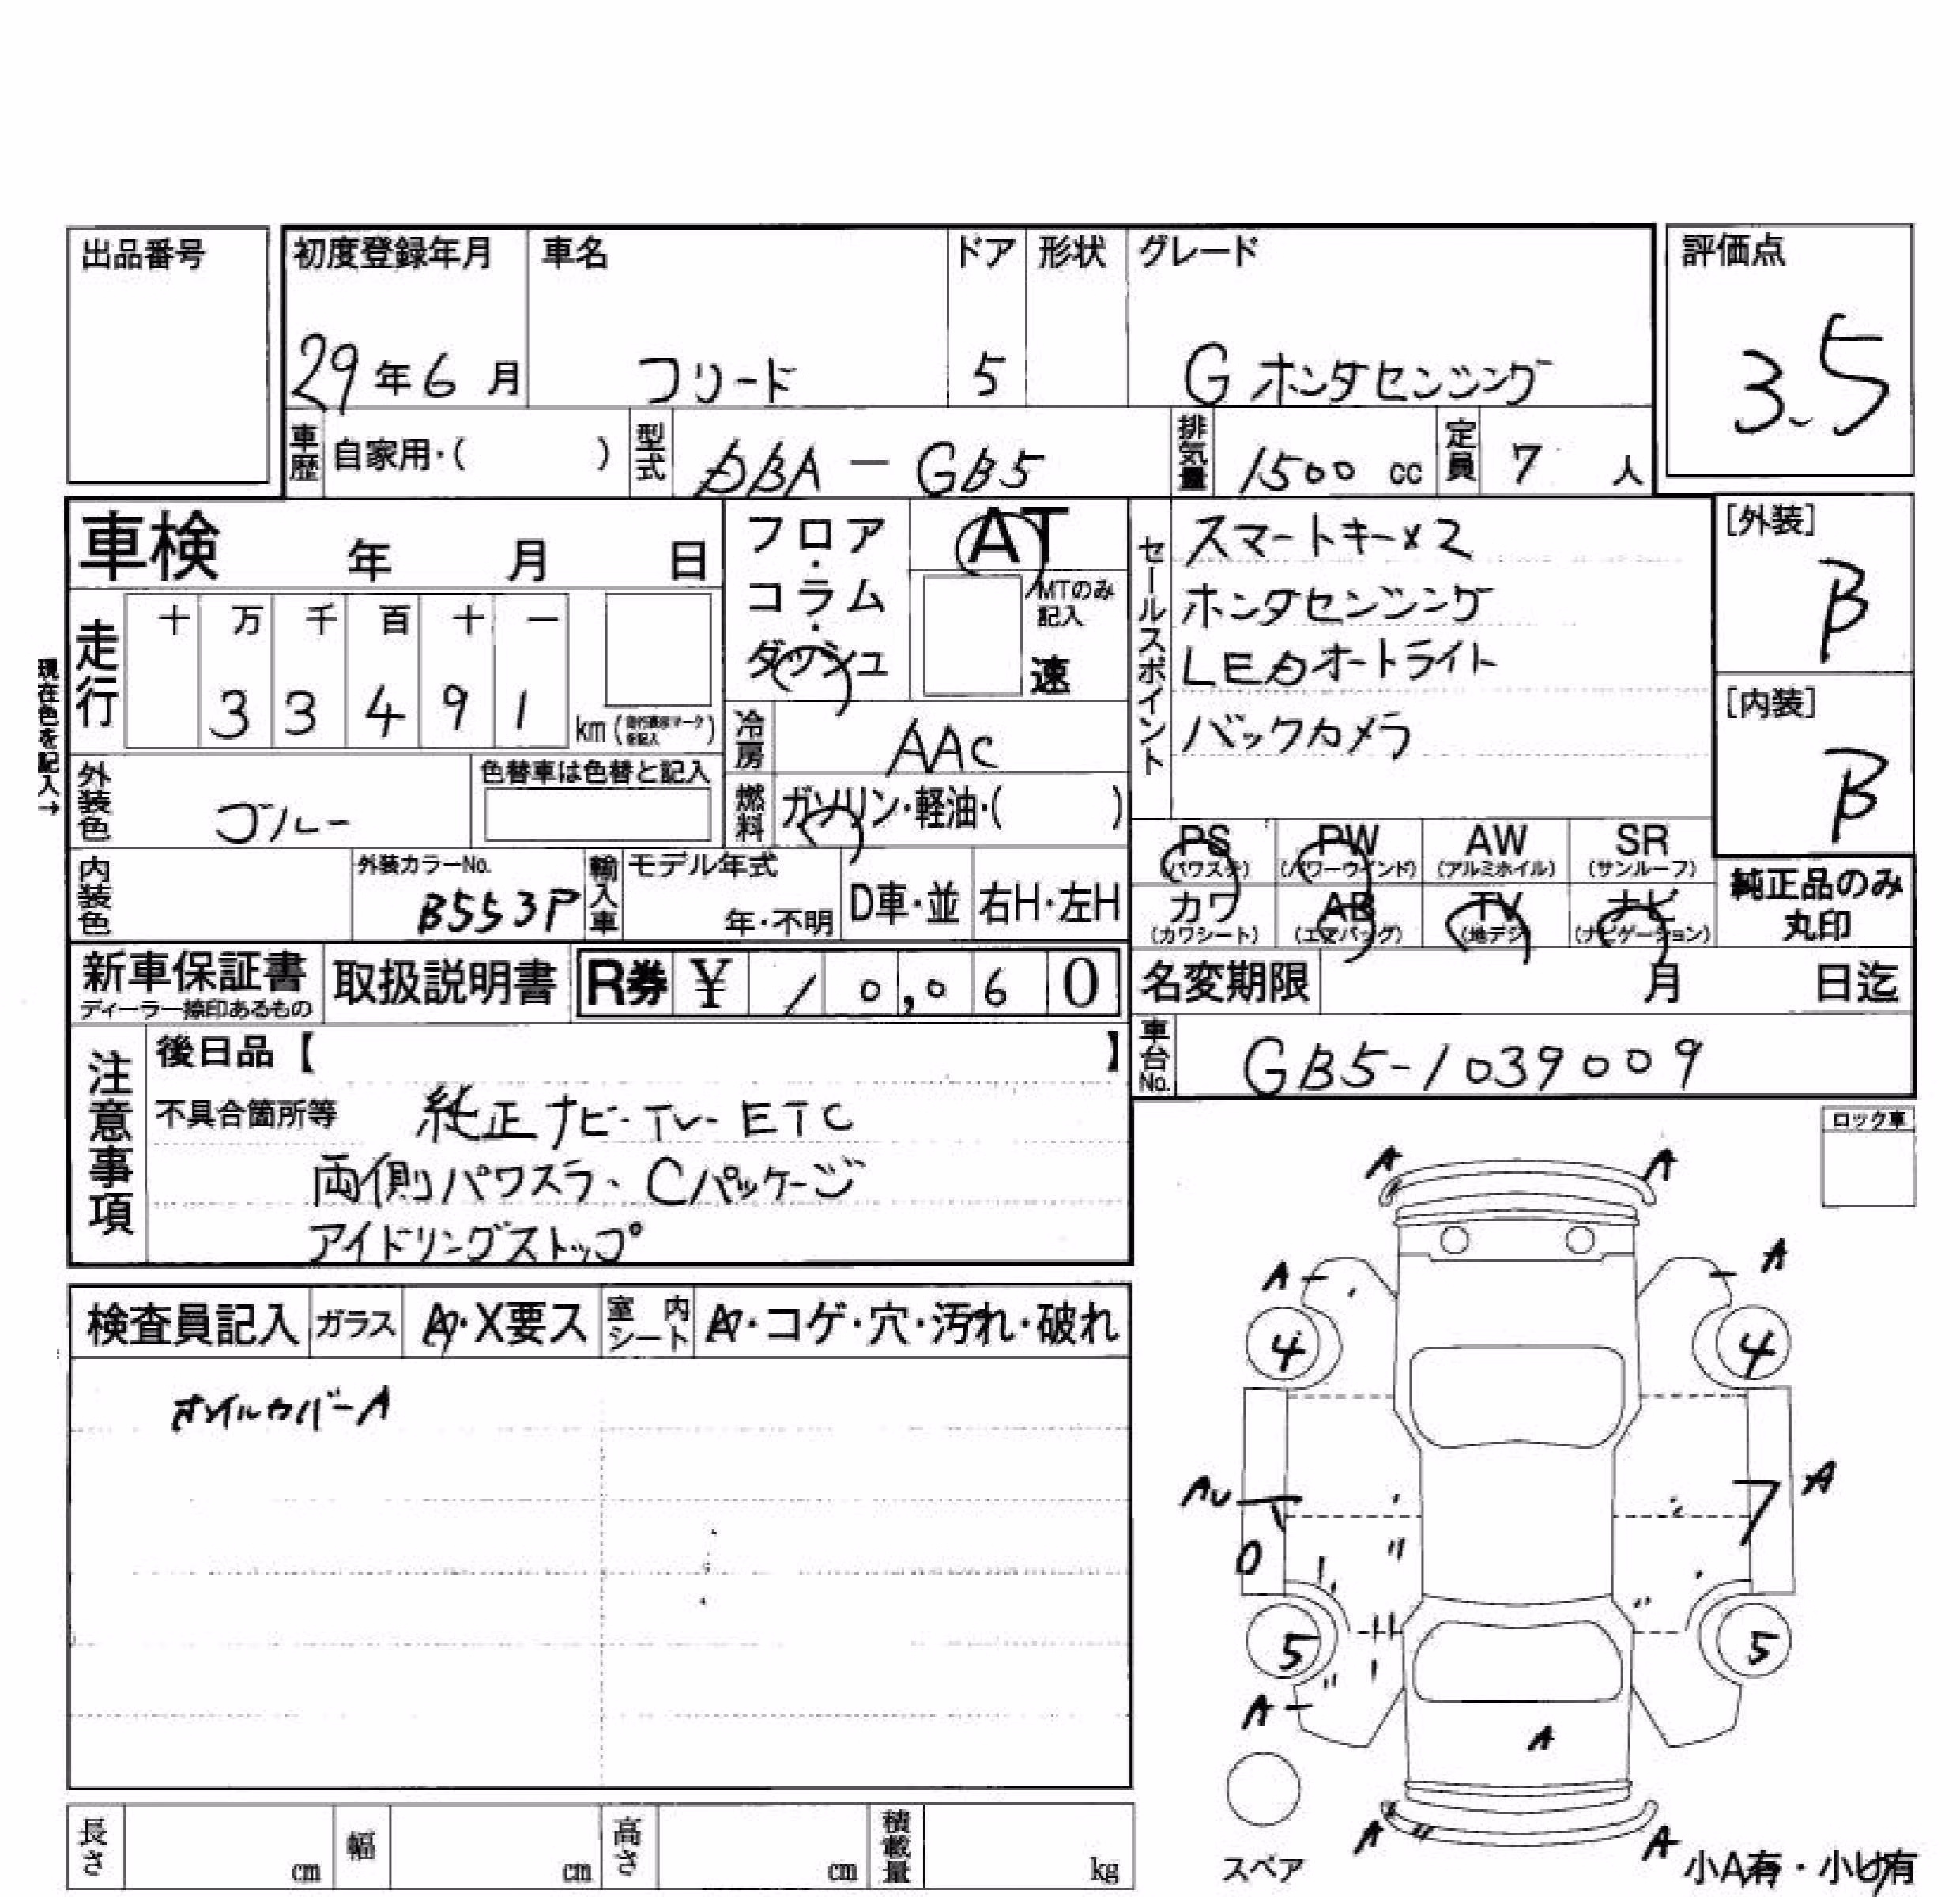 出品番号
初度登録年月 車名 ドア 形状 グレード
評価点
29年6月 フリード 5 Gホンダセンシング
3.5
車歴 自家用・( ) 型式 DBA-GB5 排気量 1500cc 定員 7人
車検 年 月 日
フロア・コラム・ダッシュ
AT
MTのみ記入
速
セールスポイント
スマートキー×2
ホンダセンシング
LEDオートライト
バックカメラ
[外装]
B
[内装]
B
現在色を記入→
走行
十 万 千 百 十 一
3 3 4 9 1
km
冷房 AAC
外装色 ブルー
色替車は色替と記入
燃料 ガソリン・軽油・( )
PS (パワステ) PW (パワーウインド) AW (アルミホイル) SR (サンルーフ)
カワ (カワシート) AB (エアバッグ) TV (地デジ) ナビ (ナビゲーション)
純正品のみ丸印
内装色
外装カラーNo.
B553P
輸入車 モデル年式 年・不明 D車・並 右H・左H
新車保証書
ディーラー捺印あるもの
取扱説明書
R券 ¥ 10,060
名変期限 月 日迄
車台No. GB5-1039009
注意事項
後日品【 】
不具合箇所等 純正ナビ-TV-ETC
両側パワスラ、Cパッケージ
アイドリングストップ
ロック車
検査員記入 ガラス ・X要ス 室内シート ・コゲ・穴・汚れ・破れ
オイルカバーA
A A
A A
4 4
AU A
5 5
A
A
A A
スペア
小A有・小U有
長さ cm 幅 cm 高さ cm 積載量 kg